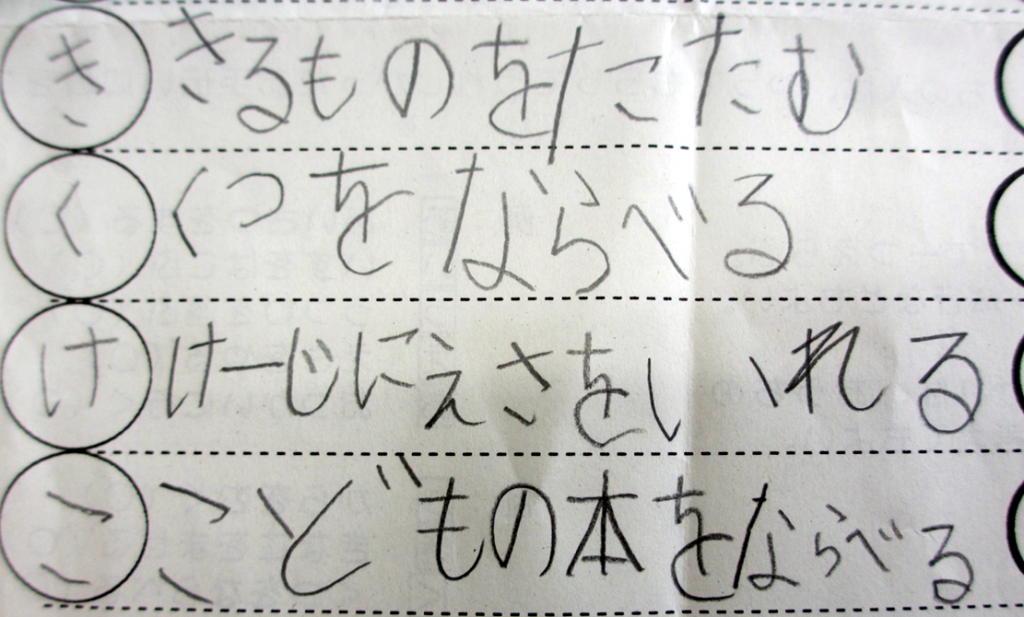 き きるものをたたむ
く くつをならべる
け けーじにえさをいれる
こ こどもの本をならべる